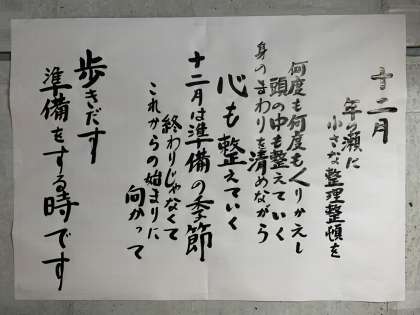 十二月
年の瀬に
小さな整理整頓を
何度も何度もくりかえし
頭の中も整えていく
身のまわりを清めながら
心も整えていく
十二月は準備の季節
終わりじゃなくて
これからの始まりに
向かって
歩きだす
準備をする時です